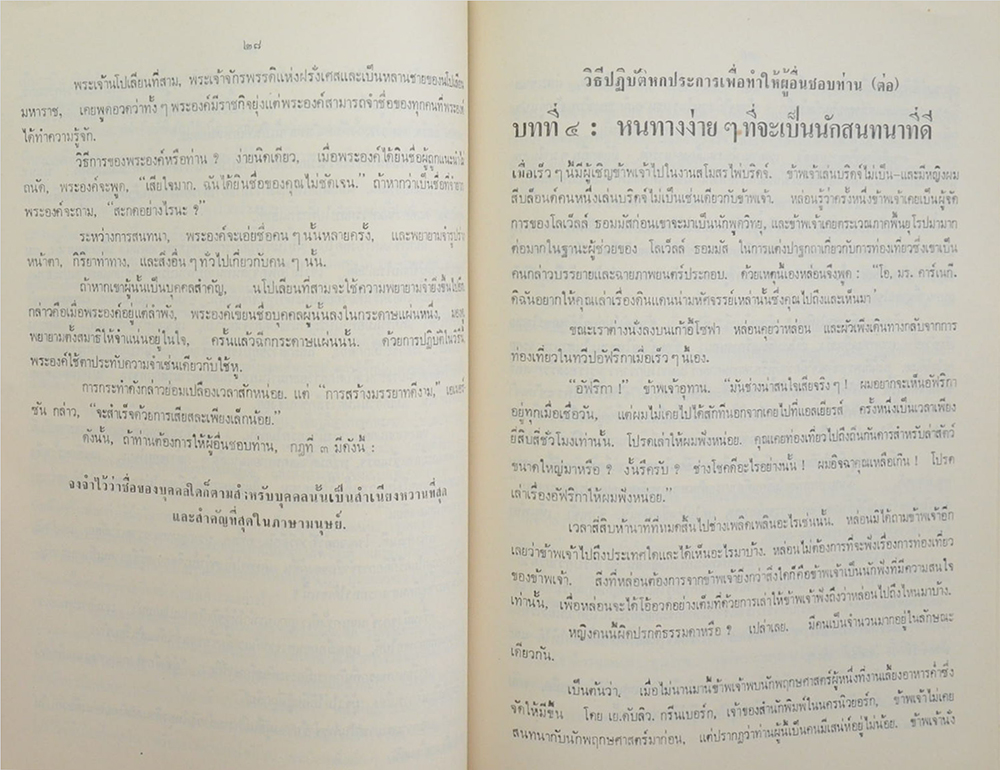 ๒๘
พระเจ้านโปเลียนที่สาม, พระเจ้าจักรพรรดิแห่งฝรั่งเศสและเป็นหลานชายของนโปเลียน
มหาราช, เคยพูดอวดว่าทั้ง ๆ พระองค์มีราชกิจยุ่งแต่พระองค์สามารถจำชื่อของทุกคนที่พระองค์
ได้ทำความรู้จัก.
วิธีการของพระองค์หรือท่าน ? ง่ายนิดเดียว, เมื่อพระองค์ได้ยินชื่อผู้ถูกแนะนำไม่
ถนัด, พระองค์จะพูด, “เสียใจมาก. ฉันได้ยินชื่อของคุณไม่ชัดเจน.” ถ้าหากว่าเป็นชื่อที่
พระองค์จะถาม, “สะกดอย่างไรนะ ?”
ระหว่างการสนทนา, พระองค์จะเอ่ยชื่อคน ๆ นั้นหลายครั้ง, และพยายามจำรูปร่าง
หน้าตา, กิริยาท่าทาง, และสิ่งอื่น ๆ ทั่วไปเกี่ยวกับคน ๆ นั้น.
ถ้าหากเขาผู้นั้นเป็นบุคคลสำคัญ, นโปเลียนที่สามจะใช้ความพยายามจำยิ่งขึ้นไปอีก
กล่าวคือเมื่อพระองค์อยู่แต่ลำพัง, พระองค์เขียนชื่อบุคคลผู้นั้นลงในกระดาษแผ่นหนึ่ง,
พยายามตั้งสมาธิให้จำแน่นอยู่ในใจ, ครั้นแล้วฉีกกระดาษแผ่นนั้น. ด้วยการปฏิบัติในวิธีนี้
พระองค์ใช้ตาประทับความจำเช่นเดียวกับใช้หู.
การกระทำดังกล่าวย่อมเปลืองเวลาสักหน่อย. แต่ “การสร้างมรรยาทดีงาม”, เอเมอร์
ซัน กล่าว, “จะสำเร็จด้วยการเสียสละเพียงเล็กน้อย.”
ดังนั้น, ถ้าท่านต้องการให้ผู้อื่นชอบท่าน, กฎที่ ๓ มีดังนี้ :
จงจำไว้ว่าชื่อของบุคคลใดก็ตามสำหรับบุคคลนั้นเป็นสำเนียงหวานที่สุด
และสำคัญที่สุดในภาษามนุษย์.
วิธีปฏิบัติหกประการเพื่อทำให้ผู้อื่นชอบท่าน (ต่อ)
บทที่ ๔ : หนทางง่าย ๆ ที่จะเป็นนักสนทนาที่ดี
เมื่อเร็ว ๆ นี้มีผู้เชิญข้าพเจ้าไปในงานสโมสรไพ่บริดจ์. ข้าพเจ้าเล่นบริดจ์ไม่เป็น–และมีหญิงผม
สีบล็อนด์คนหนึ่งเล่นบริดจ์ไม่เป็นเช่นเดียวกับข้าพเจ้า. หล่อนรู้ว่าครั้งหนึ่งข้าพเจ้าเคยเป็นผู้จัด
การของโลเว็ลล์ ธอมมัสก่อนเขาจะมาเป็นนักพูดวิทยุ, และข้าพเจ้าเคยตระเวณภาคพื้นยุโรปมามาก
ต่อมากในฐานะผู้ช่วยของ โลเว็ลล์ ธอมมัส ในการแต่งปาฐกถาเกี่ยวกับการท่องเที่ยวซึ่งเขาเป็น
คนกล่าวบรรยายและฉายภาพยนตร์ประกอบ. ด้วยเหตุนี้เองหล่อนจึงพูด : “โอ, มร. คาร์เนกี.
ดิฉันอยากให้คุณเล่าเรื่องดินแดนน่ามหัศจรรย์เหล่านั้นซึ่งคุณไปถึงและเห็นมา”
ขณะเราต่างนั่งลงบนเก้าอี้โซฟา หล่อนคุยว่าหล่อน และผัวเพิ่งเดินทางกลับจากการ
ท่องเที่ยวในทวีปอัฟริกาเมื่อเร็ว ๆ นี้เอง.
“อัฟริกา !” ข้าพเจ้าอุทาน. “มันช่างน่าสนใจเสียจริง ๆ ! ผมอยากจะเห็นอัฟริกา
อยู่ทุกเมื่อเชื่อวัน, แต่ผมไม่เคยไปได้สักทีนอกจากเคยไปที่แอลเยียรส์ ครั้งหนึ่งเป็นเวลาเพียง
ยี่สิบสี่ชั่วโมงเท่านั้น. โปรดเล่าให้ผมฟังหน่อย. คุณเคยท่องเที่ยวไปถึงถิ่นกันดารสำหรับล่าสัตว์
ขนาดใหญ่มาหรือ ? งั้นรึครับ ? ช่างโชคดีอะไรอย่างนั้น ! ผมอิจฉาคุณเหลือเกิน ! โปรด
เล่าเรื่องอัฟริกาให้ผมฟังหน่อย.”
เวลาสี่สิบห้านาทีที่หมดสิ้นไปช่างเพลิดเพลินอะไรเช่นนั้น. หล่อนมิได้ถามข้าพเจ้าอีก
เลยว่าข้าพเจ้าไปถึงประเทศใดและได้เห็นอะไรมาบ้าง. หล่อนไม่ต้องการที่จะฟังเรื่องการท่องเที่ยว
ของข้าพเจ้า. สิ่งที่หล่อนต้องการจากข้าพเจ้ายิ่งกว่าสิ่งใดก็คือข้าพเจ้าเป็นนักฟังที่มีความสนใจ
เท่านั้น, เพื่อหล่อนจะได้โอ้อวดอย่างเต็มที่ด้วยการเล่าให้ข้าพเจ้าฟังถึงว่าหล่อนไปถึงไหนมาบ้าง.
หญิงคนนี้ผิดปรกติธรรมดาหรือ ? เปล่าเลย. มีคนเป็นจำนวนมากอยู่ในลักษณะ
เดียวกัน.
เป็นต้นว่า, เมื่อไม่นานมานี้ข้าพเจ้าพบนักพฤกษศาสตร์ผู้หนึ่งที่งานเลี้ยงอาหารค่ำซึ่ง
จัดให้มีขึ้น โดย เย.ดับลิว. กรีนเบอร์ก, เจ้าของสำนักพิมพ์ในนครนิวยอร์ก, ข้าพเจ้าไม่เคย
สนทนากับนักพฤกษศาสตร์มาก่อน, แต่ปรากฏว่าท่านผู้นี้เป็นคนมีเสน่ห์อยู่ไม่น้อย. ข้าพเจ้านั่ง